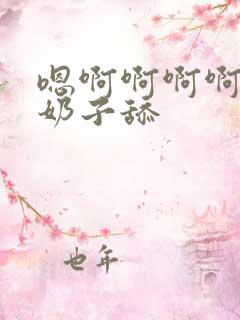 嗯啊啊啊啊
奶子舔
也年